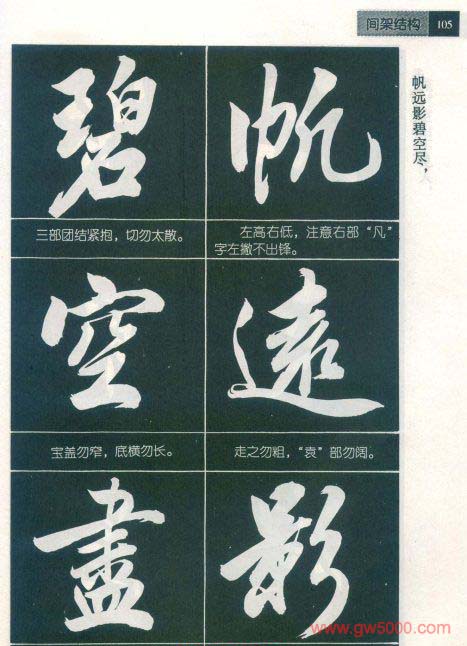 间架结构 105
帆远影碧空尽，
帆
左高右低，注意右部“凡”
字左撇不出锋。
遠
走之勿粗，“袁”部勿阔。
影
碧
三部团结紧抱，切勿太散。
空
宝盖勿窄，底横勿长。
盡
www.gw5000.com